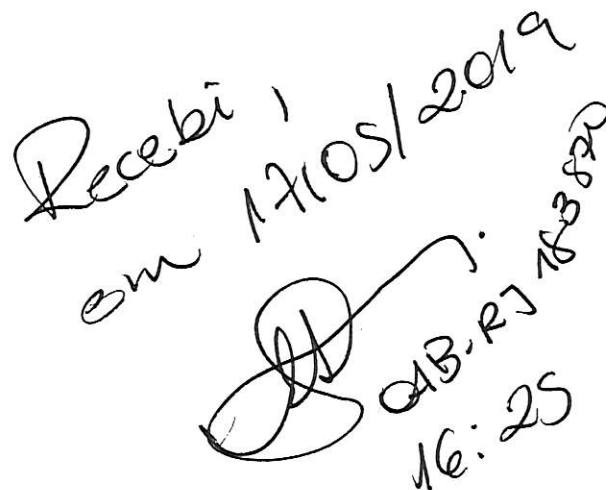 Recebi,
em 17/05/2019
OAB-RJ 183
16:25